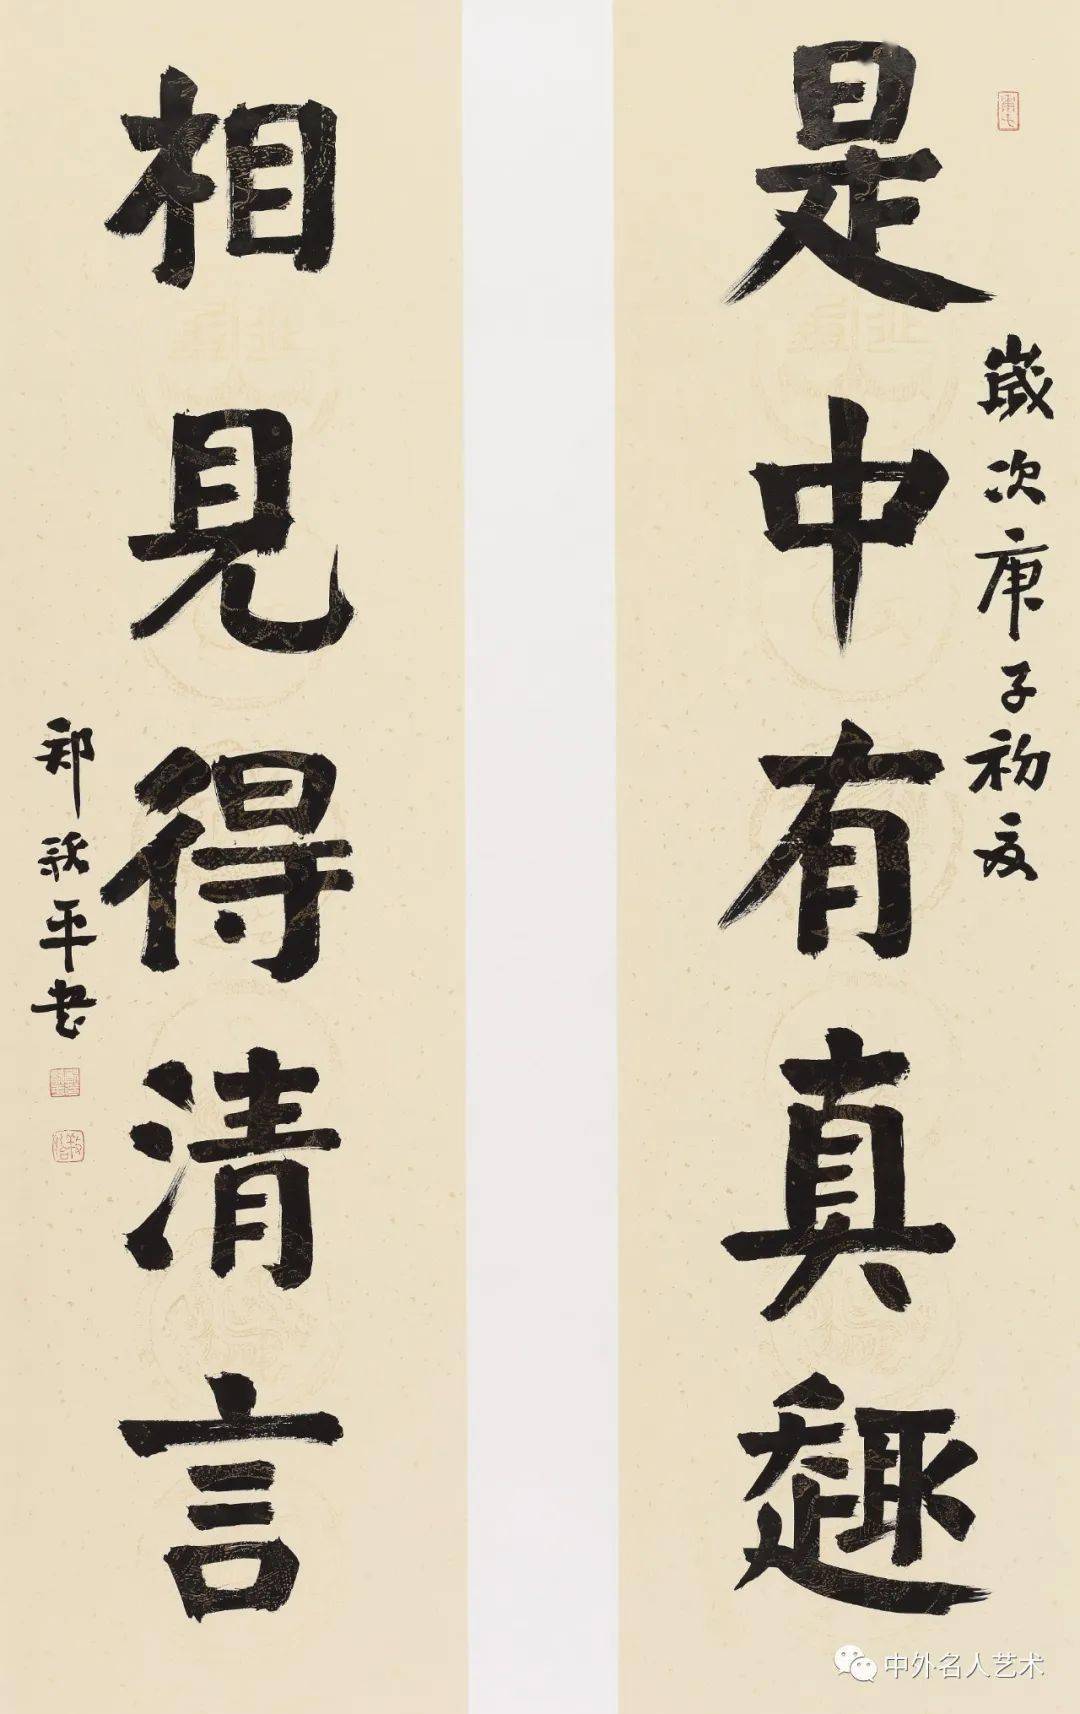 是中有真趣
歲次庚子初夏
相見得清言
郑歌平书
中外名人艺术